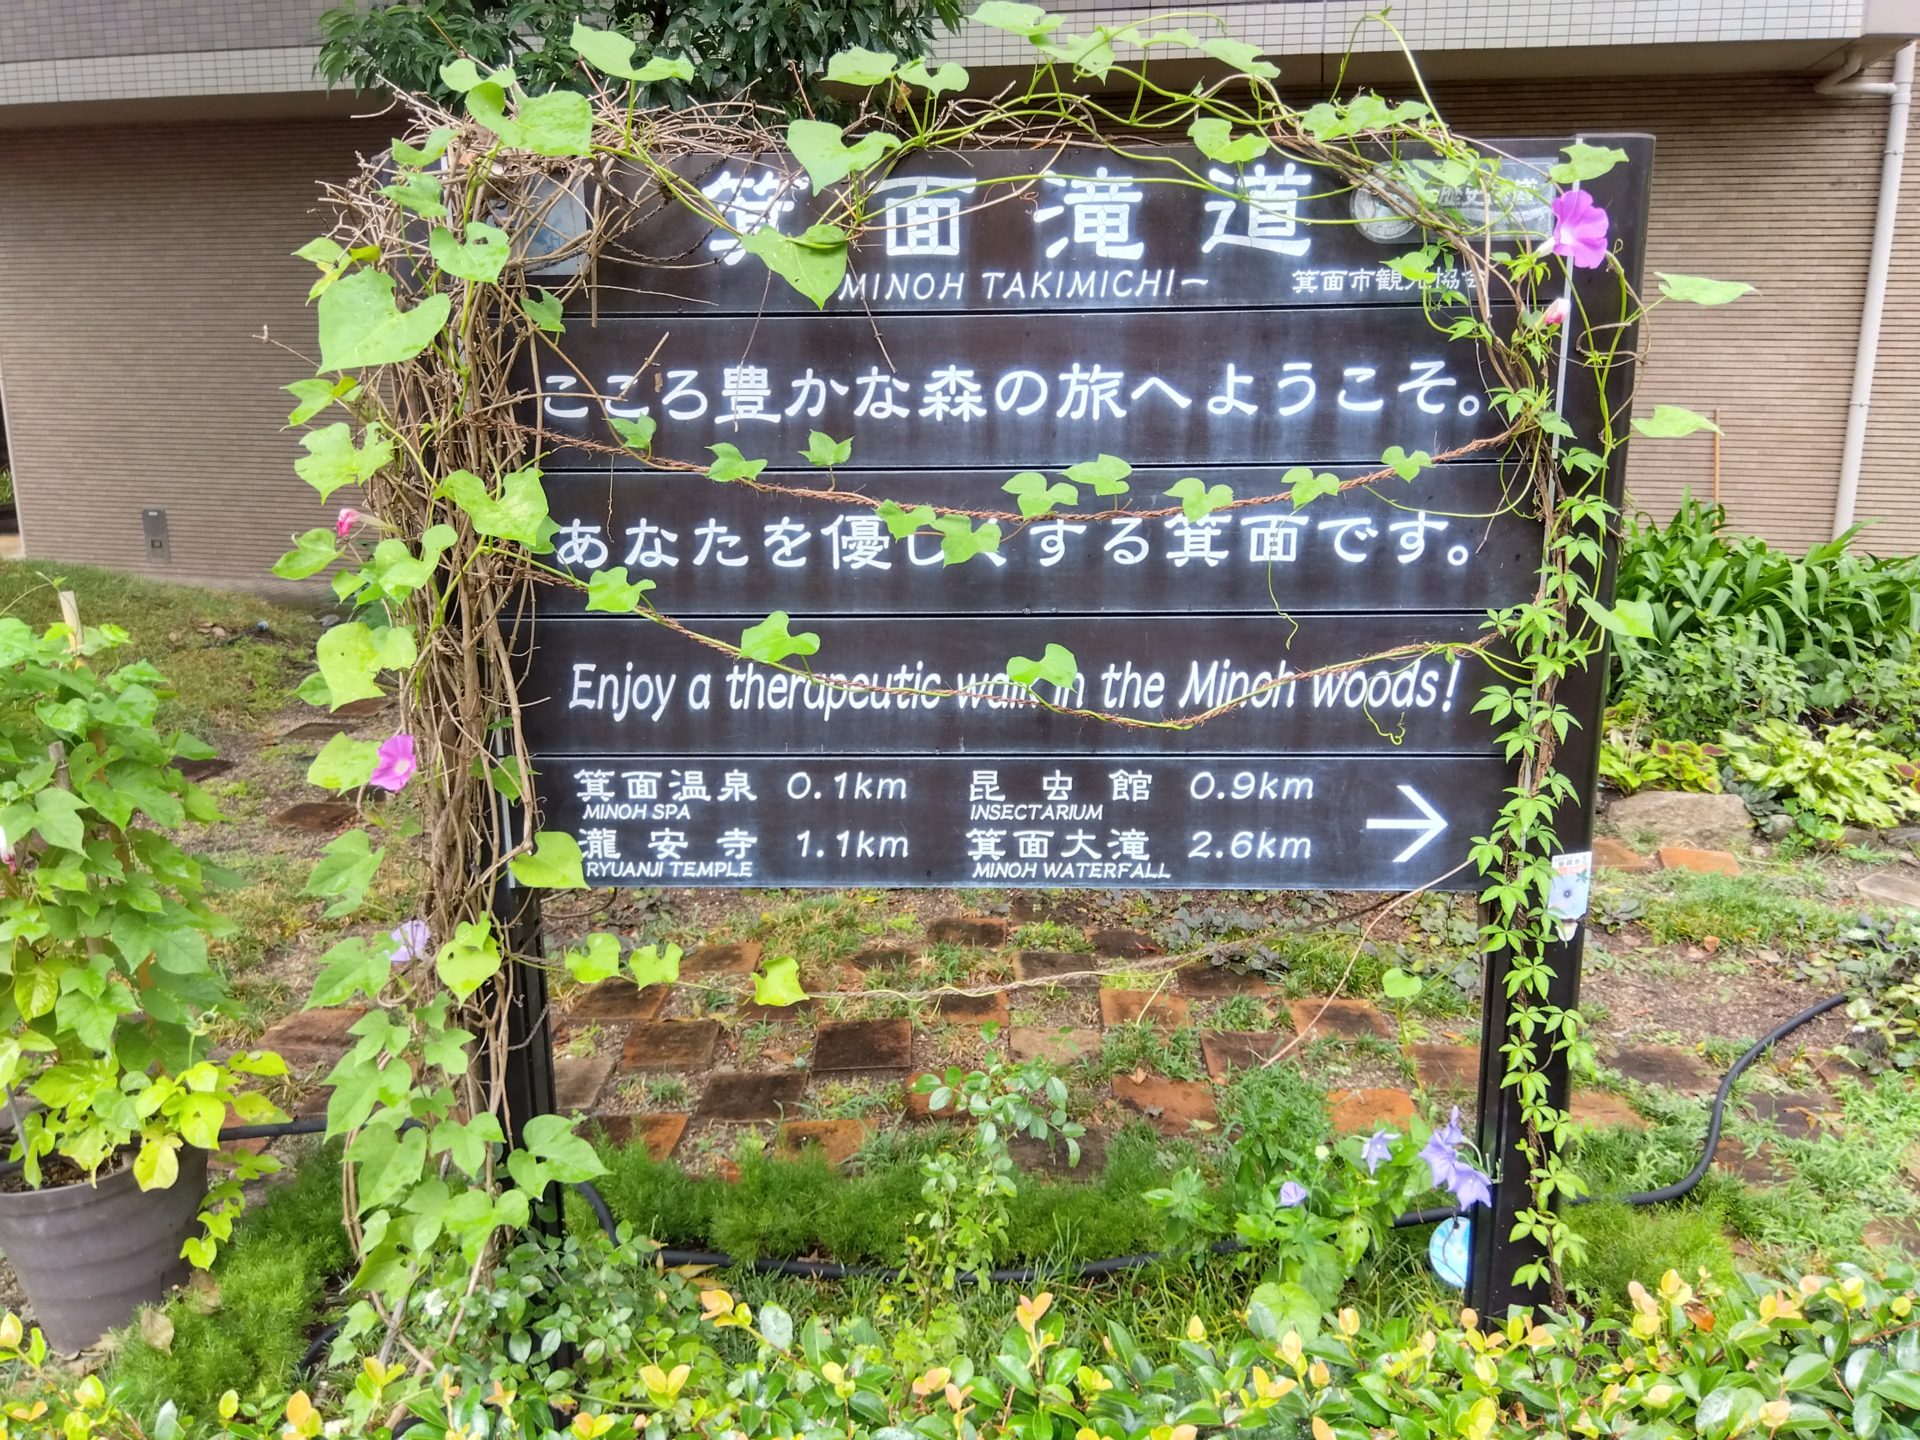 箕面滝道
~MINOH TAKIMICHI~
箕面市観光協会
こころ豊かな森の旅へようこそ。
あなたを優しくする箕面です。
Enjoy a therapeutic walk in the Minoh woods!
箕面温泉 0.1km
MINOH SPA
昆虫館 0.9km
INSECTARIUM
瀧安寺 1.1km
RYUANJI TEMPLE
箕面大滝 2.6km
MINOH WATERFALL
→